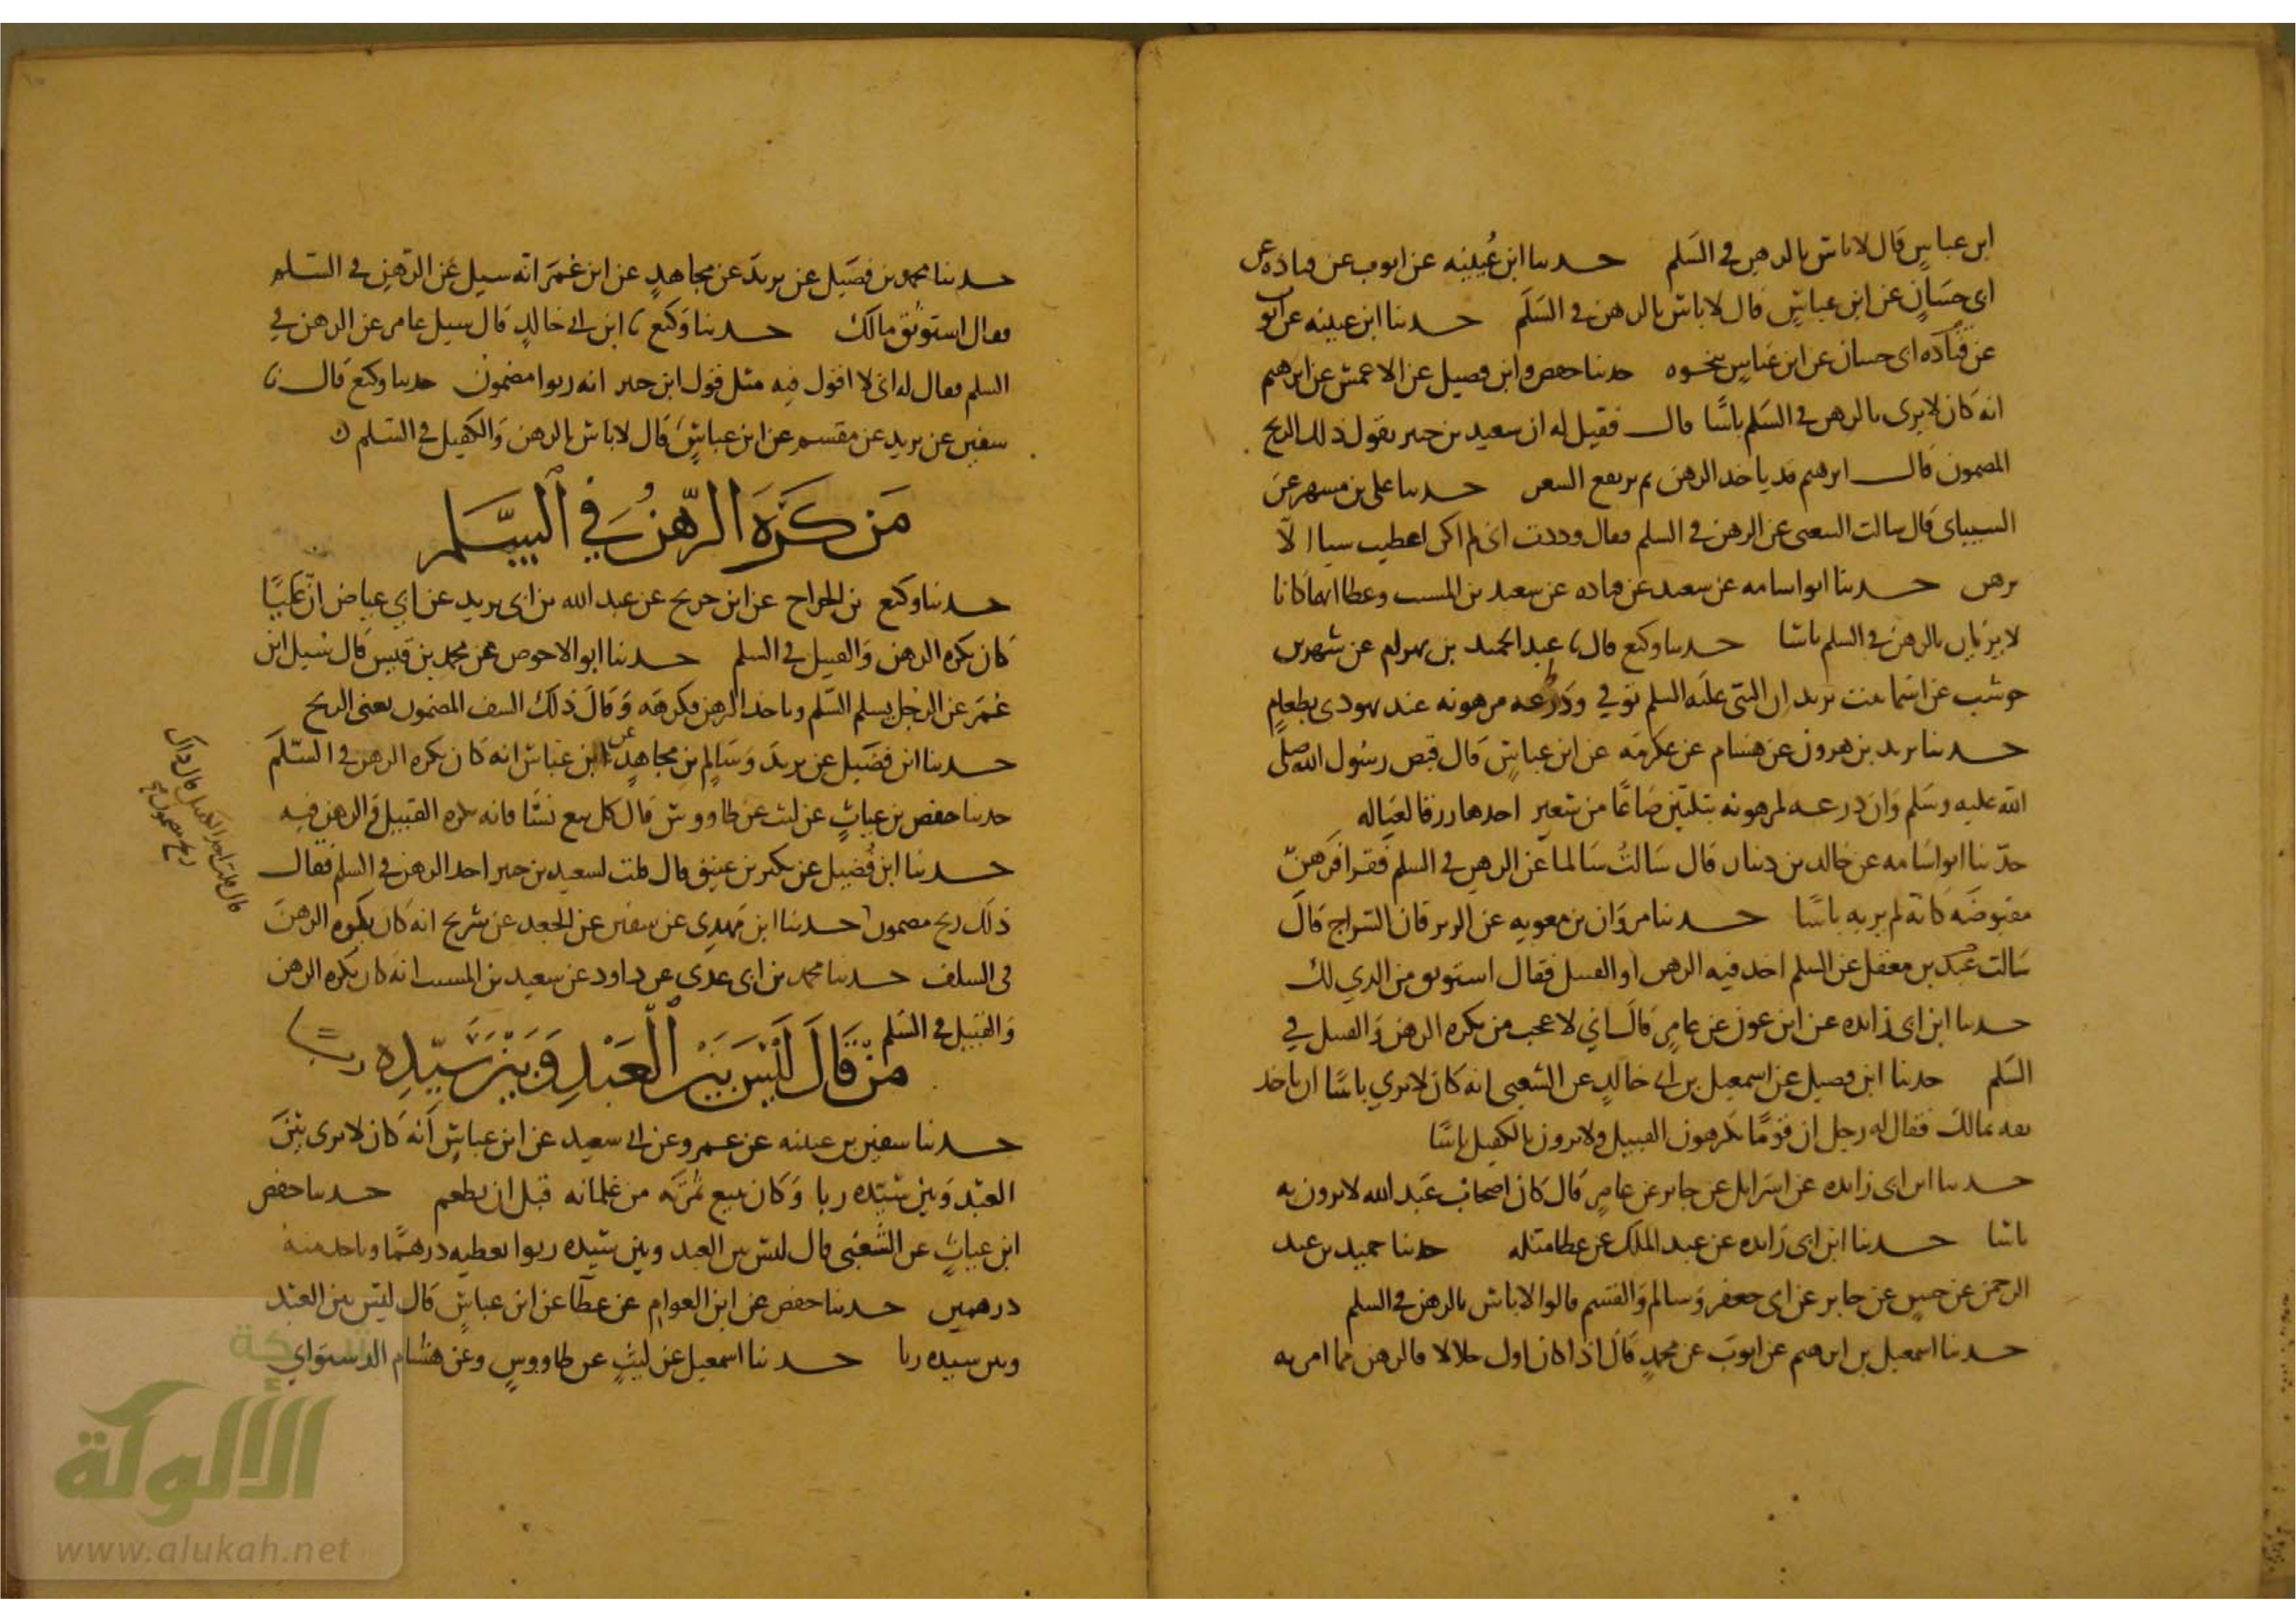 ابن عباس قال لا باس بالرهن في السلم حدثنا ابن عيينه عن ايوب عن قتاده عن
ابي حسان عن ابن عباس قال لا باس بالرهن في السلم حدثنا ابن عيينه عن ايوب
عن قتاده ابي حسان عن ابن عباس بنحوه حدثنا حفص وابن فضيل عن الاعمش عن ابرهيم
انه كان لا يرى بالرهن في السلم باسا قال فقيل له ان سعيد بن جبير يقول ذلك الربح
المضمون قال ابرهيم قد ياخذ الرهن ثم يرتفع السعر حدثنا علي بن مسهر عن
الشيباني قال سالت الشعبي عن الرهن في السلم فقال وددت اني لم اكن اعطيت شيا الا
برهن حدثنا ابو اسامه عن سعيد عن قتاده عن سعيد بن المسيب وعطا انهما كانا
لا يريان بالرهن في السلم باسا حدثنا وكيع قال نا عبد الحميد بن بهرام عن شهر بن
حوشب عن اسما بنت يزيد ان النبي عليه السلم توفي ودرعه مرهونه عند يهودي بطعام
حدثنا يزيد بن هرون عن هشام عن عكرمه عن ابن عباس قال قبض رسول الله صلى
الله عليه وسلم وان درعه لمرهونه بثلثين صاعا من شعير اخذها رزقا لعياله
حدثنا ابو اسامه عن خالد بن دينار قال سالت سالما عن الرهن في السلم فقرا فرهن
مقبوضه كانه لم ير به باسا حدثنا مروان بن معويه عن الزبرقان السراج قال
سالت عبد بن معقل عن السلم اخذ فيه الرهن او القبيل فقال استوثق من الذي لك
حدثنا ابن ابي زائده عن ابن عون عن عامر قال اني لاعجب من يكره الرهن والقبيل في
السلم حدثنا ابن فضيل عن اسمعيل بن ابي خالد عن الشعبي انه كان لا يري باسا ان ياخذ
ثقه بمالك فقال له رجل ان قوما يكرهون القبيل ولا يرون بالكفيل باسا
حدثنا ابن ابي زائده عن اسرايل عن جابر عن عامر قال كان اصحاب عبد الله لا يرون به
باسا حدثنا ابن ابي زائده عن عبد الملك عن عطا مثله حدثنا حميد بن عبد
الرحمن عن حسن عن جابر عن ابي جعفر وسالم والقسم قالوا لا باس بالرهن في السلم
حدثنا اسمعيل بن ابرهيم عن ايوب عن محمد قال اذا كان اول حلالا فالرهن مما امر به
حدثنا محمد بن فضيل عن يزيد عن مجاهد عن ابن عمر انه سيل عن الرهن في السلم
فقال استوثق مالك حدثنا وكيع نا ابن ابي خالد قال سيل عامر عن الرهن في
السلم فقال له اني لا اقول فيه مثل قول ابن جبير انه ربوا مضمون حدثنا وكيع قال نا
سفين عن يزيد عن مقسم عن ابن عباس قال لا باس بالرهن والكفيل في السلم
من كره الرهن في السلم
حدثنا وكيع بن الجراح عن ابن جريج عن عبد الله بن ابي يزيد عن ابي عياض ان عليا
كان يكره الرهن والقبيل في السلم حدثنا ابو الاحوص عن محمد بن قيس قال سيل ابن
عمر عن الرجل يسلم السلم وياخذ الرهن فكرهه وقال ذلك السف المضمون يعني الربح
حدثنا ابن فضيل عن يزيد وسالم بن مجاهد عن ابن عباس انه كان يكره الرهن في السلم
حدثنا حفص بن غياث عن ليث عن طاووس قال كل بيع نسا فانه يكره القبيل والرهن فيه
حدثنا ابن فضيل عن بكير بن عتيق قال قلت لسعيد بن جبير اخذ الرهن في السلم فقال
ذلك ربح مضمون حدثنا ابن مهدي عن سفين عن الجعد عن شريح انه كان يكره الرهن
في السلف حدثنا محمد بن ابي عدي عن داود عن سعيد بن المسيب انه كان يكره الرهن
والقبيل في السلم
من قال ليس بين العبد وبين سيده ربا
حدثنا سفين بن عيينه عن عمرو عن ابي سعيد عن ابن عباس انه كان لا يرى بين
العبد وبين سيده ربا وكان يبيع ثمره من غلمانه قبل ان يطعم حدثنا حفص
ابن غياث عن الشعبي قال ليس بين العبد وبين سيده ربوا يعطيه درهما وياخذ منه
درهمين حدثنا حفص عن ابن العوام عن عطا عن ابن عباس قال ليس بين العبد
وبين سيده ربا حدثنا اسمعيل عن ليث عن طاووس وعن هشام الدستواي
قال قلت اخذ الكفيل قال ذاك
ربح مضمون
شبكة
الألوكة
www.alukah.net